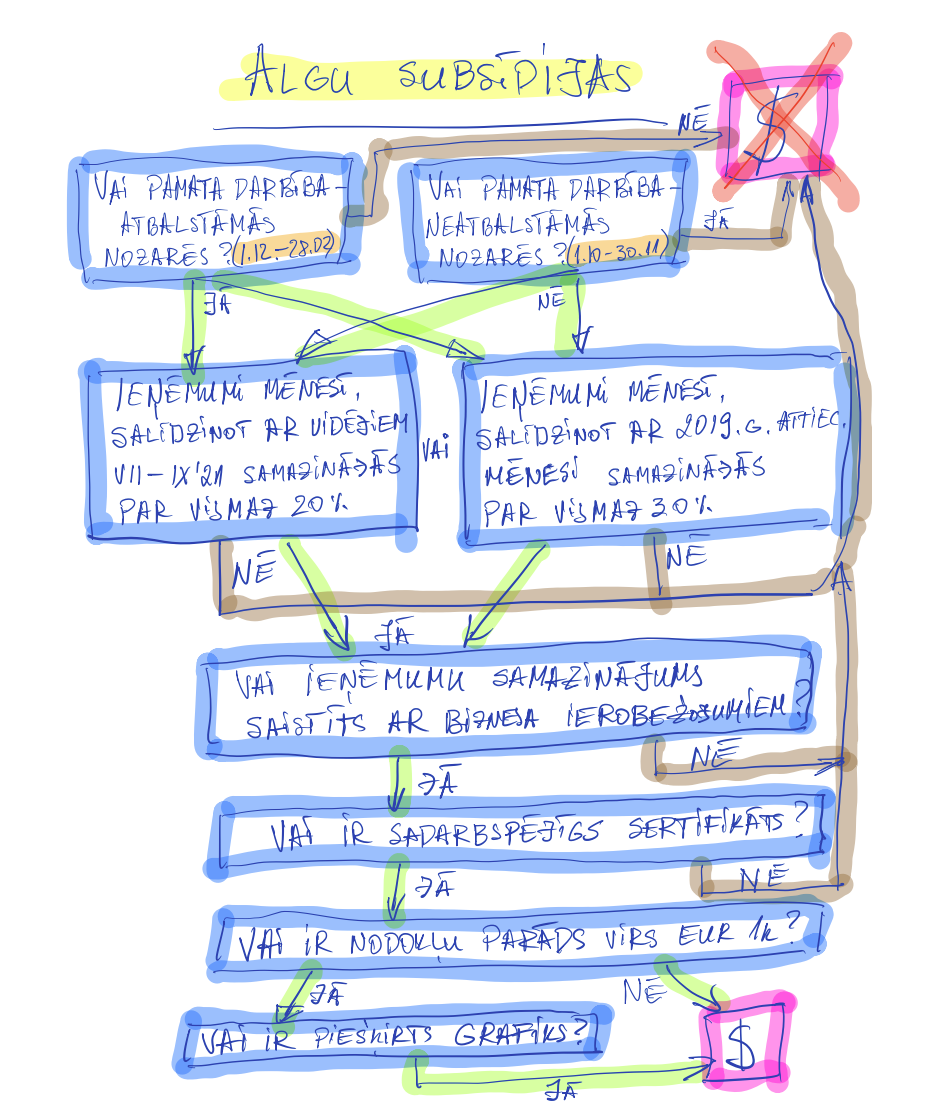 ALGU SUBSĪDIJAS
$
NĒ
VAI PAMATA DARBĪBA –
ATBALSTĀMĀS
NOZARĒS ? (1.12.–28.02)
VAI PAMATA DARBĪBA –
NEATBALSTĀMĀS
NOZARĒS ? (1.10–30.11)
JĀ
JĀ
NĒ
IEŅĒMUMI MĒNESĪ,
SALĪDZINOT AR VIDĒJIEM
VII–IX'21 SAMAZINĀJĀS
PAR VISMAZ 20%
VAI
IEŅĒMUMI MĒNESĪ,
SALĪDZINOT AR 2019.G. ATTIEC.
MĒNESI SAMAZINĀJĀS
PAR VISMAZ 30%
NĒ
NĒ
JĀ
VAI IEŅĒMUMU SAMAZINĀJUMS
SAISTĪTS AR BIZNESA IEROBEŽOJUMIEM?
NĒ
JĀ
VAI IR SADARBSPĒJĪGS SERTIFIKĀTS?
NĒ
JĀ
VAI IR NODOKĻU PARĀDS VIRS EUR 1k?
JĀ
NĒ
VAI IR PIEŠĶIRTS GRAFIKS?
$
JĀ